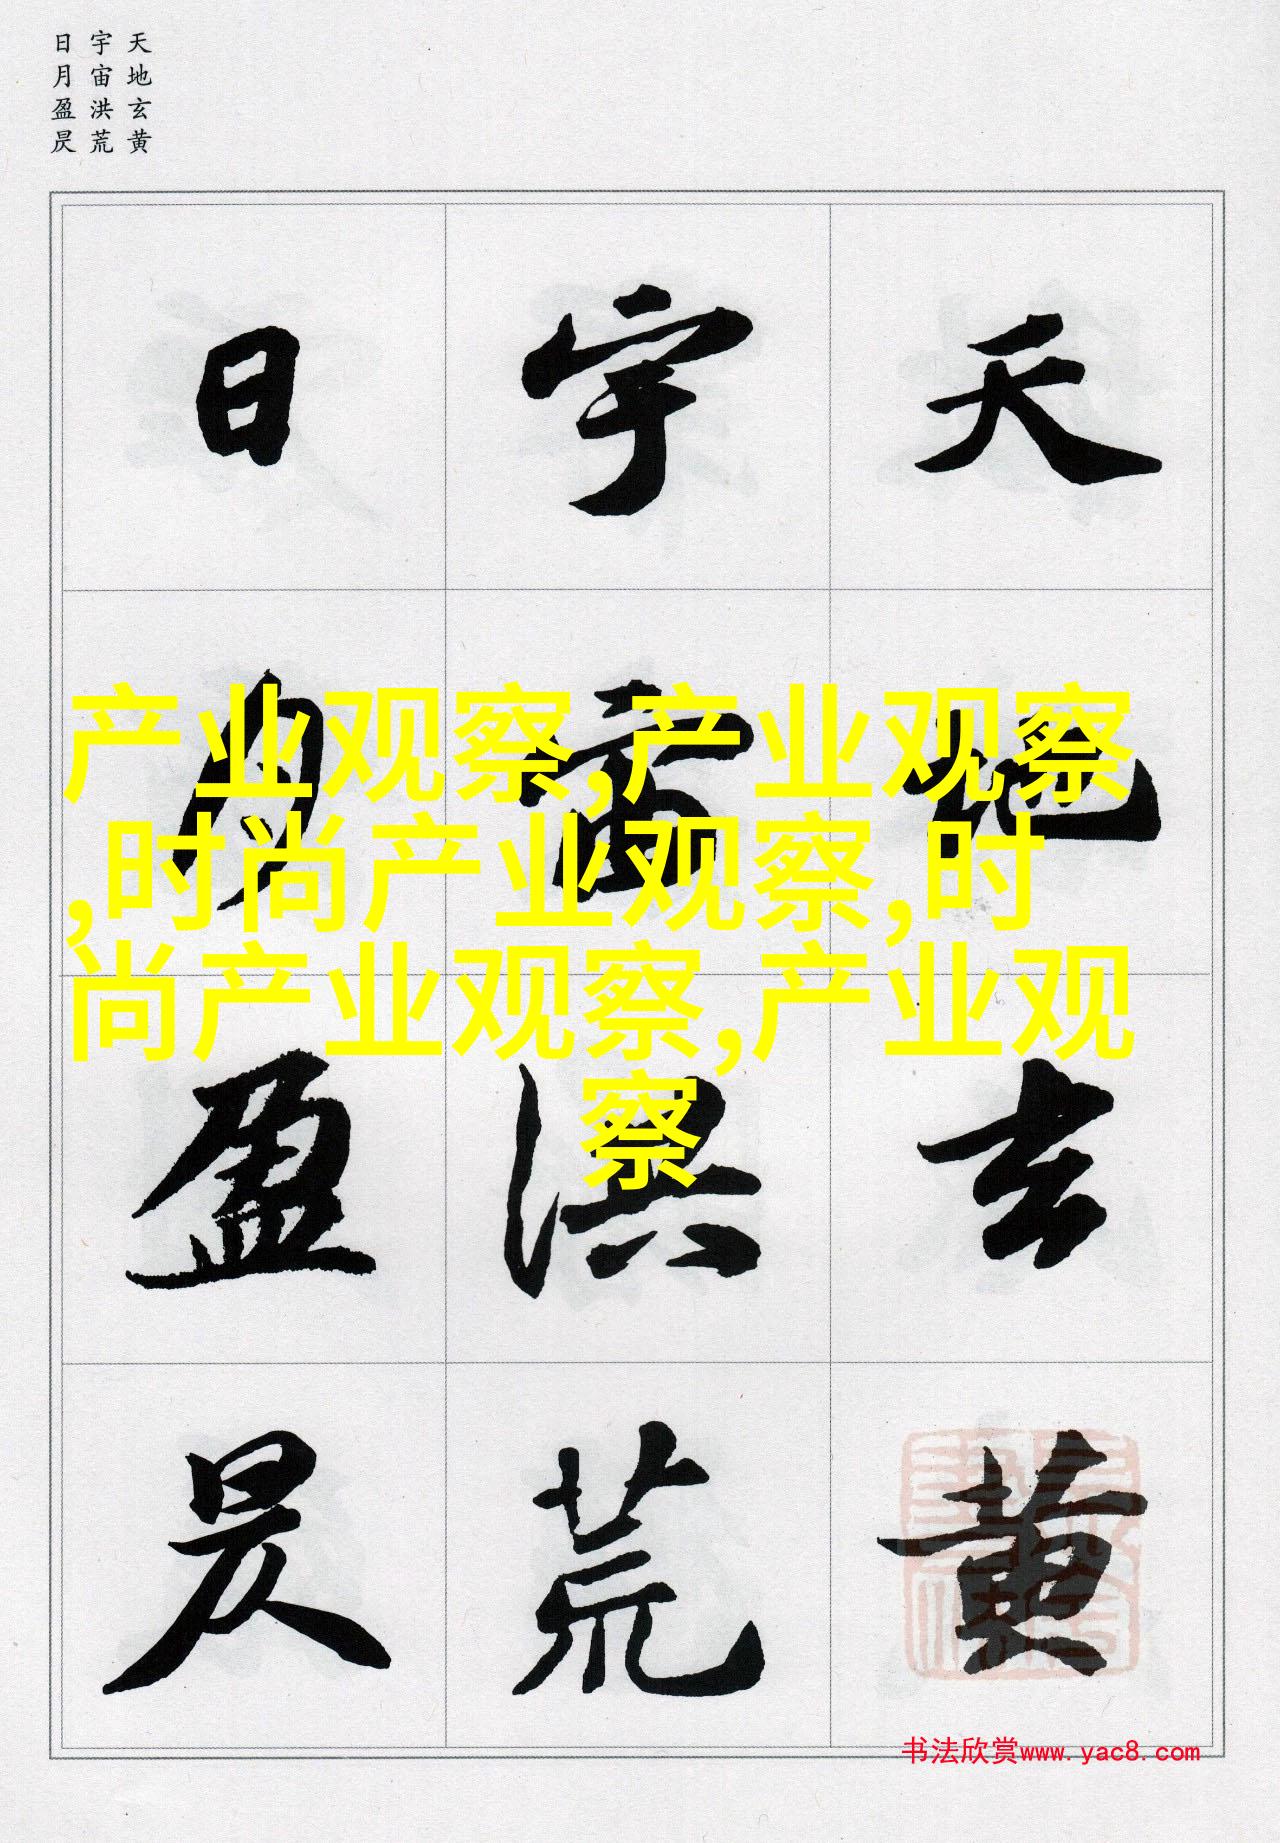 天地玄黄
宇宙洪荒
日月盈昃
天地玄黄
宇宙洪荒
日月盈昃
产业观察,产业观察
,时尚产业观察,时
尚产业观察,产业观
察
书法欣赏www.yac8.com